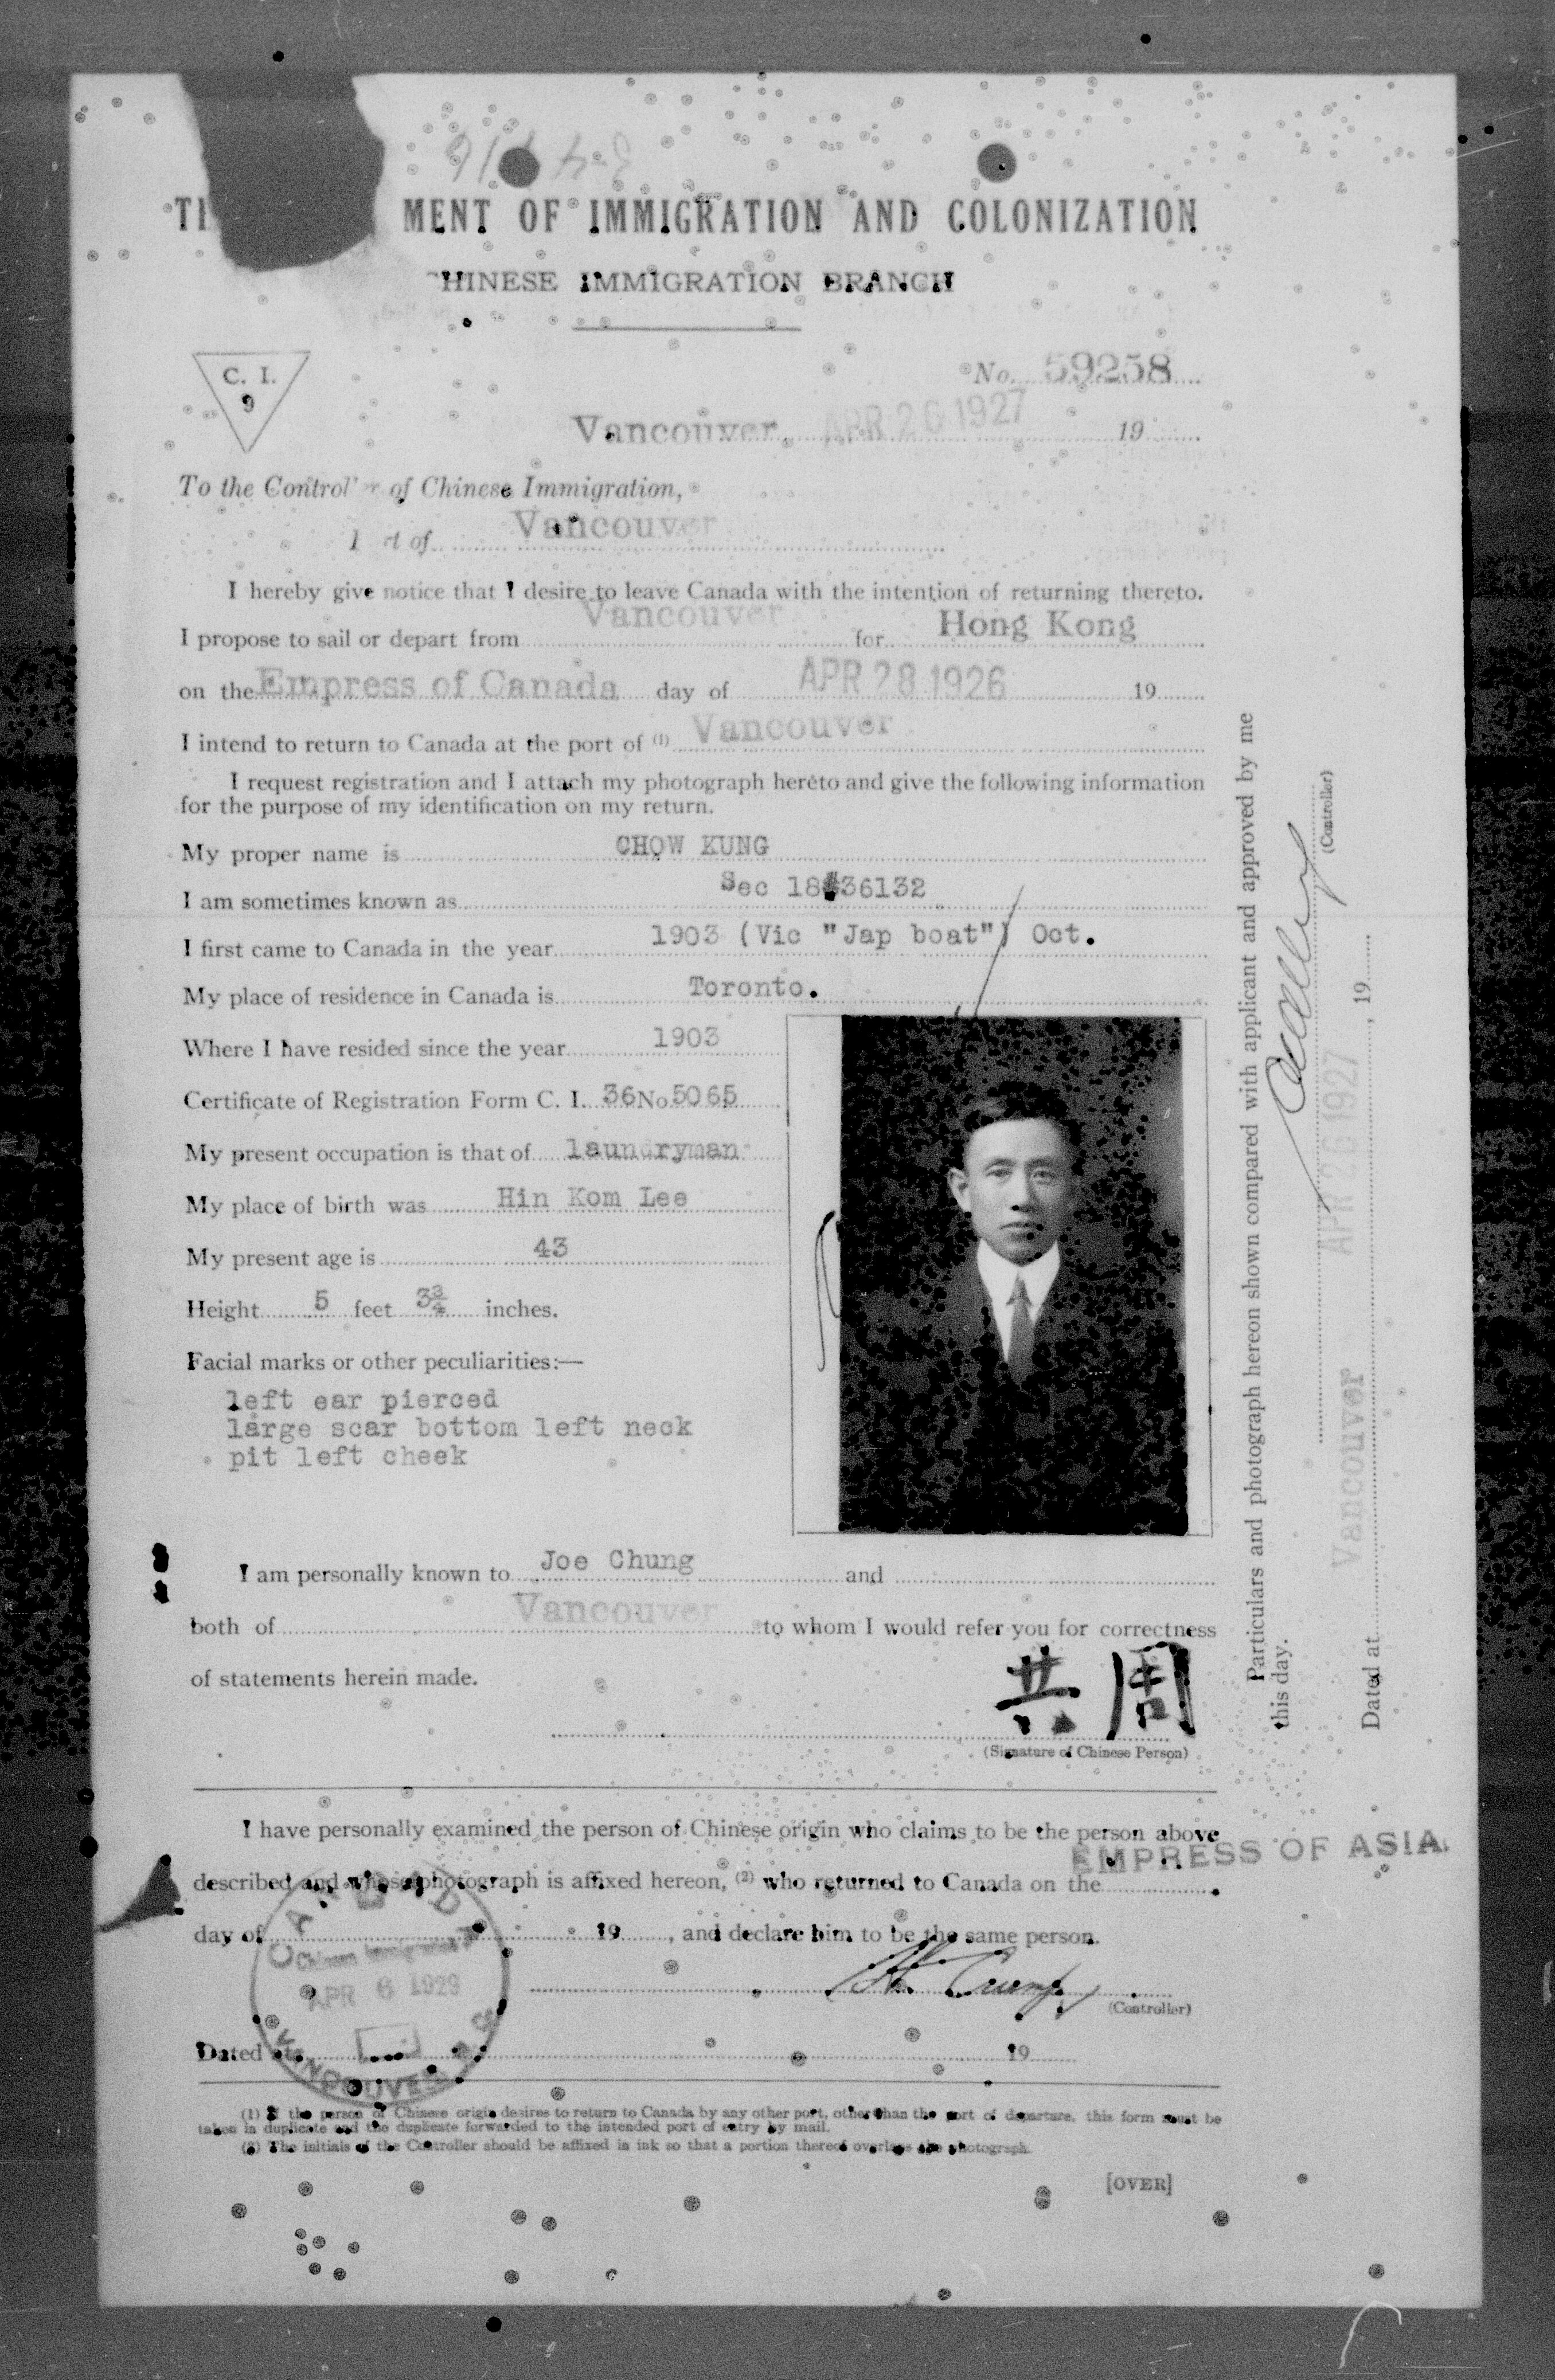 MENT OF IMMIGRATION AND COLONIZATION
HINESE IMMIGRATION BRANCH
C. I.
9
No. 59258
Vancouver, APR 26 1927 19
To the Controller of Chinese Immigration,
rt of Vancouver
I hereby give notice that I desire to leave Canada with the intention of returning thereto.
I propose to sail or depart from Vancouver for Hong Kong
on the Empress of Canada day of APR 28 1926 19
I intend to return to Canada at the port of (1) Vancouver
I request registration and I attach my photograph hereto and give the following information
for the purpose of my identification on my return.
My proper name is CHOW KUNG
I am sometimes known as Sec 18#36132
I first came to Canada in the year 1903 (Vic "Jap boat") Oct.
My place of residence in Canada is Toronto.
Where I have resided since the year 1903
Certificate of Registration Form C. I. 36 No 5065
My present occupation is that of laundryman
My place of birth was Hin Kom Lee
My present age is 43
Height 5 feet 3¾ inches.
Facial marks or other peculiarities:—
left ear pierced
large scar bottom left neck
pit left cheek
I am personally known to Joe Chung and
both of Vancouver to whom I would refer you for correctness
of statements herein made.
共周
(Signature of Chinese Person)
Particulars and photograph hereon shown compared with applicant and approved by me
this day.
(Controller)
Dated at Vancouver APR 26 1927, 19
I have personally examined the person of Chinese origin who claims to be the person above
EMPRESS OF ASIA
described and whose photograph is affixed hereon, (2) who returned to Canada on the
day of 19, and declare him to be the same person.
CANADA
Chinese Immigration
APR 6 1929
VANCOUVER B C
(Controller)
Dated at 19
(1) If the person of Chinese origin desires to return to Canada by any other port, other than the port of departure, this form must be
taken in duplicate and the duplicate forwarded to the intended port of entry by mail.
(2) The initials of the Controller should be affixed in ink so that a portion thereof overlaps the photograph.
[OVER]